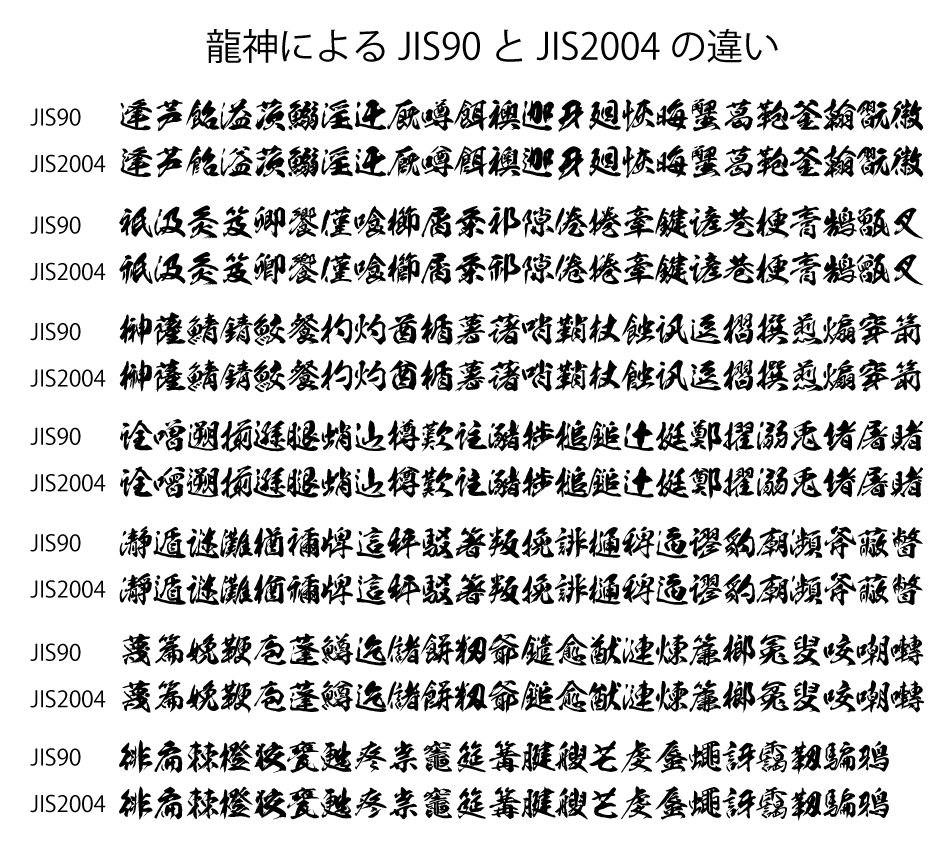 龍神による JIS90 と JIS2004 の違い
JIS90 逢芦飴溢茨鰯淫迂厩噂餌襖迦牙廻恢晦蟹葛鞄釜翰翫徽
JIS2004 逢芦飴溢茨鰯淫迂厩噂餌襖迦牙廻恢晦蟹葛鞄釜翰翫徽
JIS90 祇汲灸笈卿饗僅喰櫛屑粂祁隙倦捲牽鍵諺巷梗膏鵠甑叉
JIS2004 祇汲灸笈卿饗僅喰櫛屑粂祁隙倦捲牽鍵諺巷梗膏鵠甑叉
JIS90 榊薩鯖錆鮫餐杓灼酋楯薯藷哨鞘杖蝕訊逗摺撰煎煽穿箭
JIS2004 榊薩鯖錆鮫餐杓灼酋楯薯藷哨鞘杖蝕訊逗摺撰煎煽穿箭
JIS90 詮噌遡揃遜腿蛸辿樽歎註瀦捗槌鎚辻挺鄭擢溺兎堵屠賭
JIS2004 詮噌遡揃遜腿蛸辿樽歎註瀦捗槌鎚辻挺鄭擢溺兎堵屠賭
JIS90 瀞遁謎灘楢禰牌這秤駁箸叛挽誹樋稗逼謬豹廟瀕斧蔽瞥
JIS2004 瀞遁謎灘楢禰牌這秤駁箸叛挽誹樋稗逼謬豹廟瀕斧蔽瞥
JIS90 蔑篇娩鞭庖蓬鱒迄儲餅籾爺鑓愈猷漣煉簾榔冤叟咬嘲囀
JIS2004 蔑篇娩鞭庖蓬鱒迄儲餅籾爺鑓愈猷漣煉簾榔冤叟咬嘲囀
JIS90 徘扁棘橙狡甕甦疼祟竈筵篝腱艘芒虔蜃蠅訝靄靱騙鴉
JIS2004 徘扁棘橙狡甕甦疼祟竈筵篝腱艘芒虔蜃蠅訝靄靱騙鴉